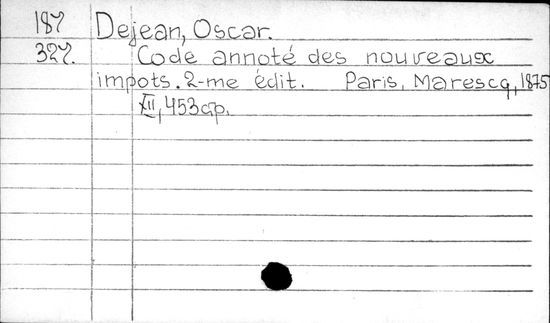 187 Dejean, Oscar.
327. Code annoté des nouveaux
impots. 2-me édit. Paris, Marescq, 1875
XII, 453 cтp.